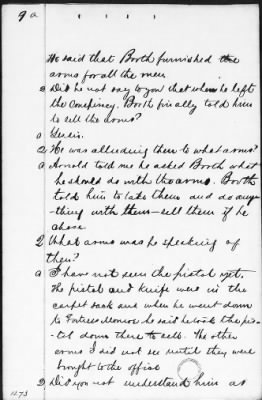 9 a
He said that Booth furnished the
arms for all the men.
Q Did he not say to you that when he left
the Conspiracy, Booth finally told him
to sell the arms?
a Yes sir.
Q He was alludeing then to what arms?
a Arnold told me he asked Booth what
he should do with the arms. Booth
told him to take them and do any-
-thing with them - sell them if he
chose
Q What arms was he speaking of
then?
a I have not seen the pistol yet.
The pistol and knife were in the
carpet sack and when he went down
to Fortress Monroe he said he took the pis-
-tol down there to sell. The other
arms I did not see until they were
brought to the office
Q Did you not understand him as